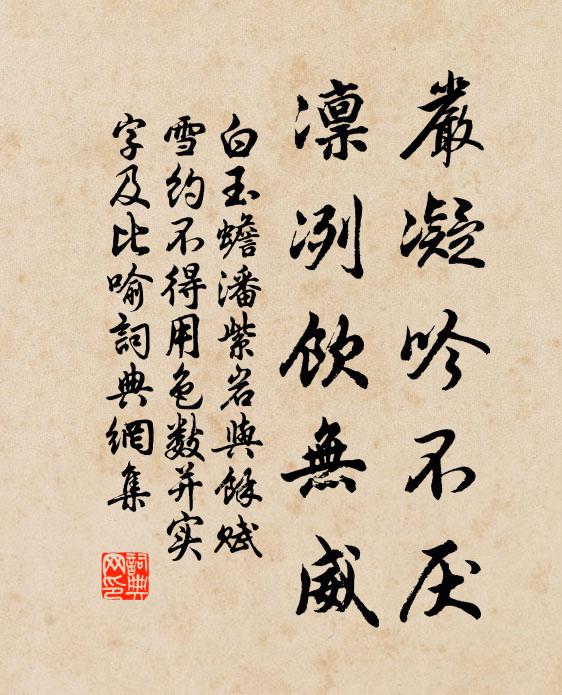 嚴凝吟不厌
凛冽飲無威
白玉蟾潘紫岩與餘赋
雪約不得用色數并实
字及比喻詞典網集
詞典網印